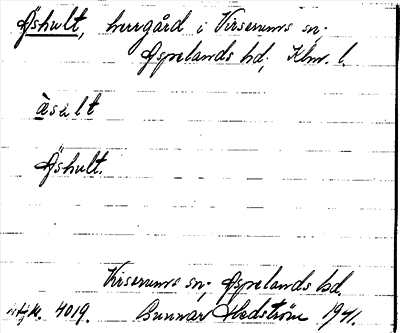 Øshult, herrgård i Virserums sn;
Aspelands hd; Klm. l.
àsàlt
Øshult.
Virserums sn; Aspelands hd.
4019. Gunnar Hedström 1941.